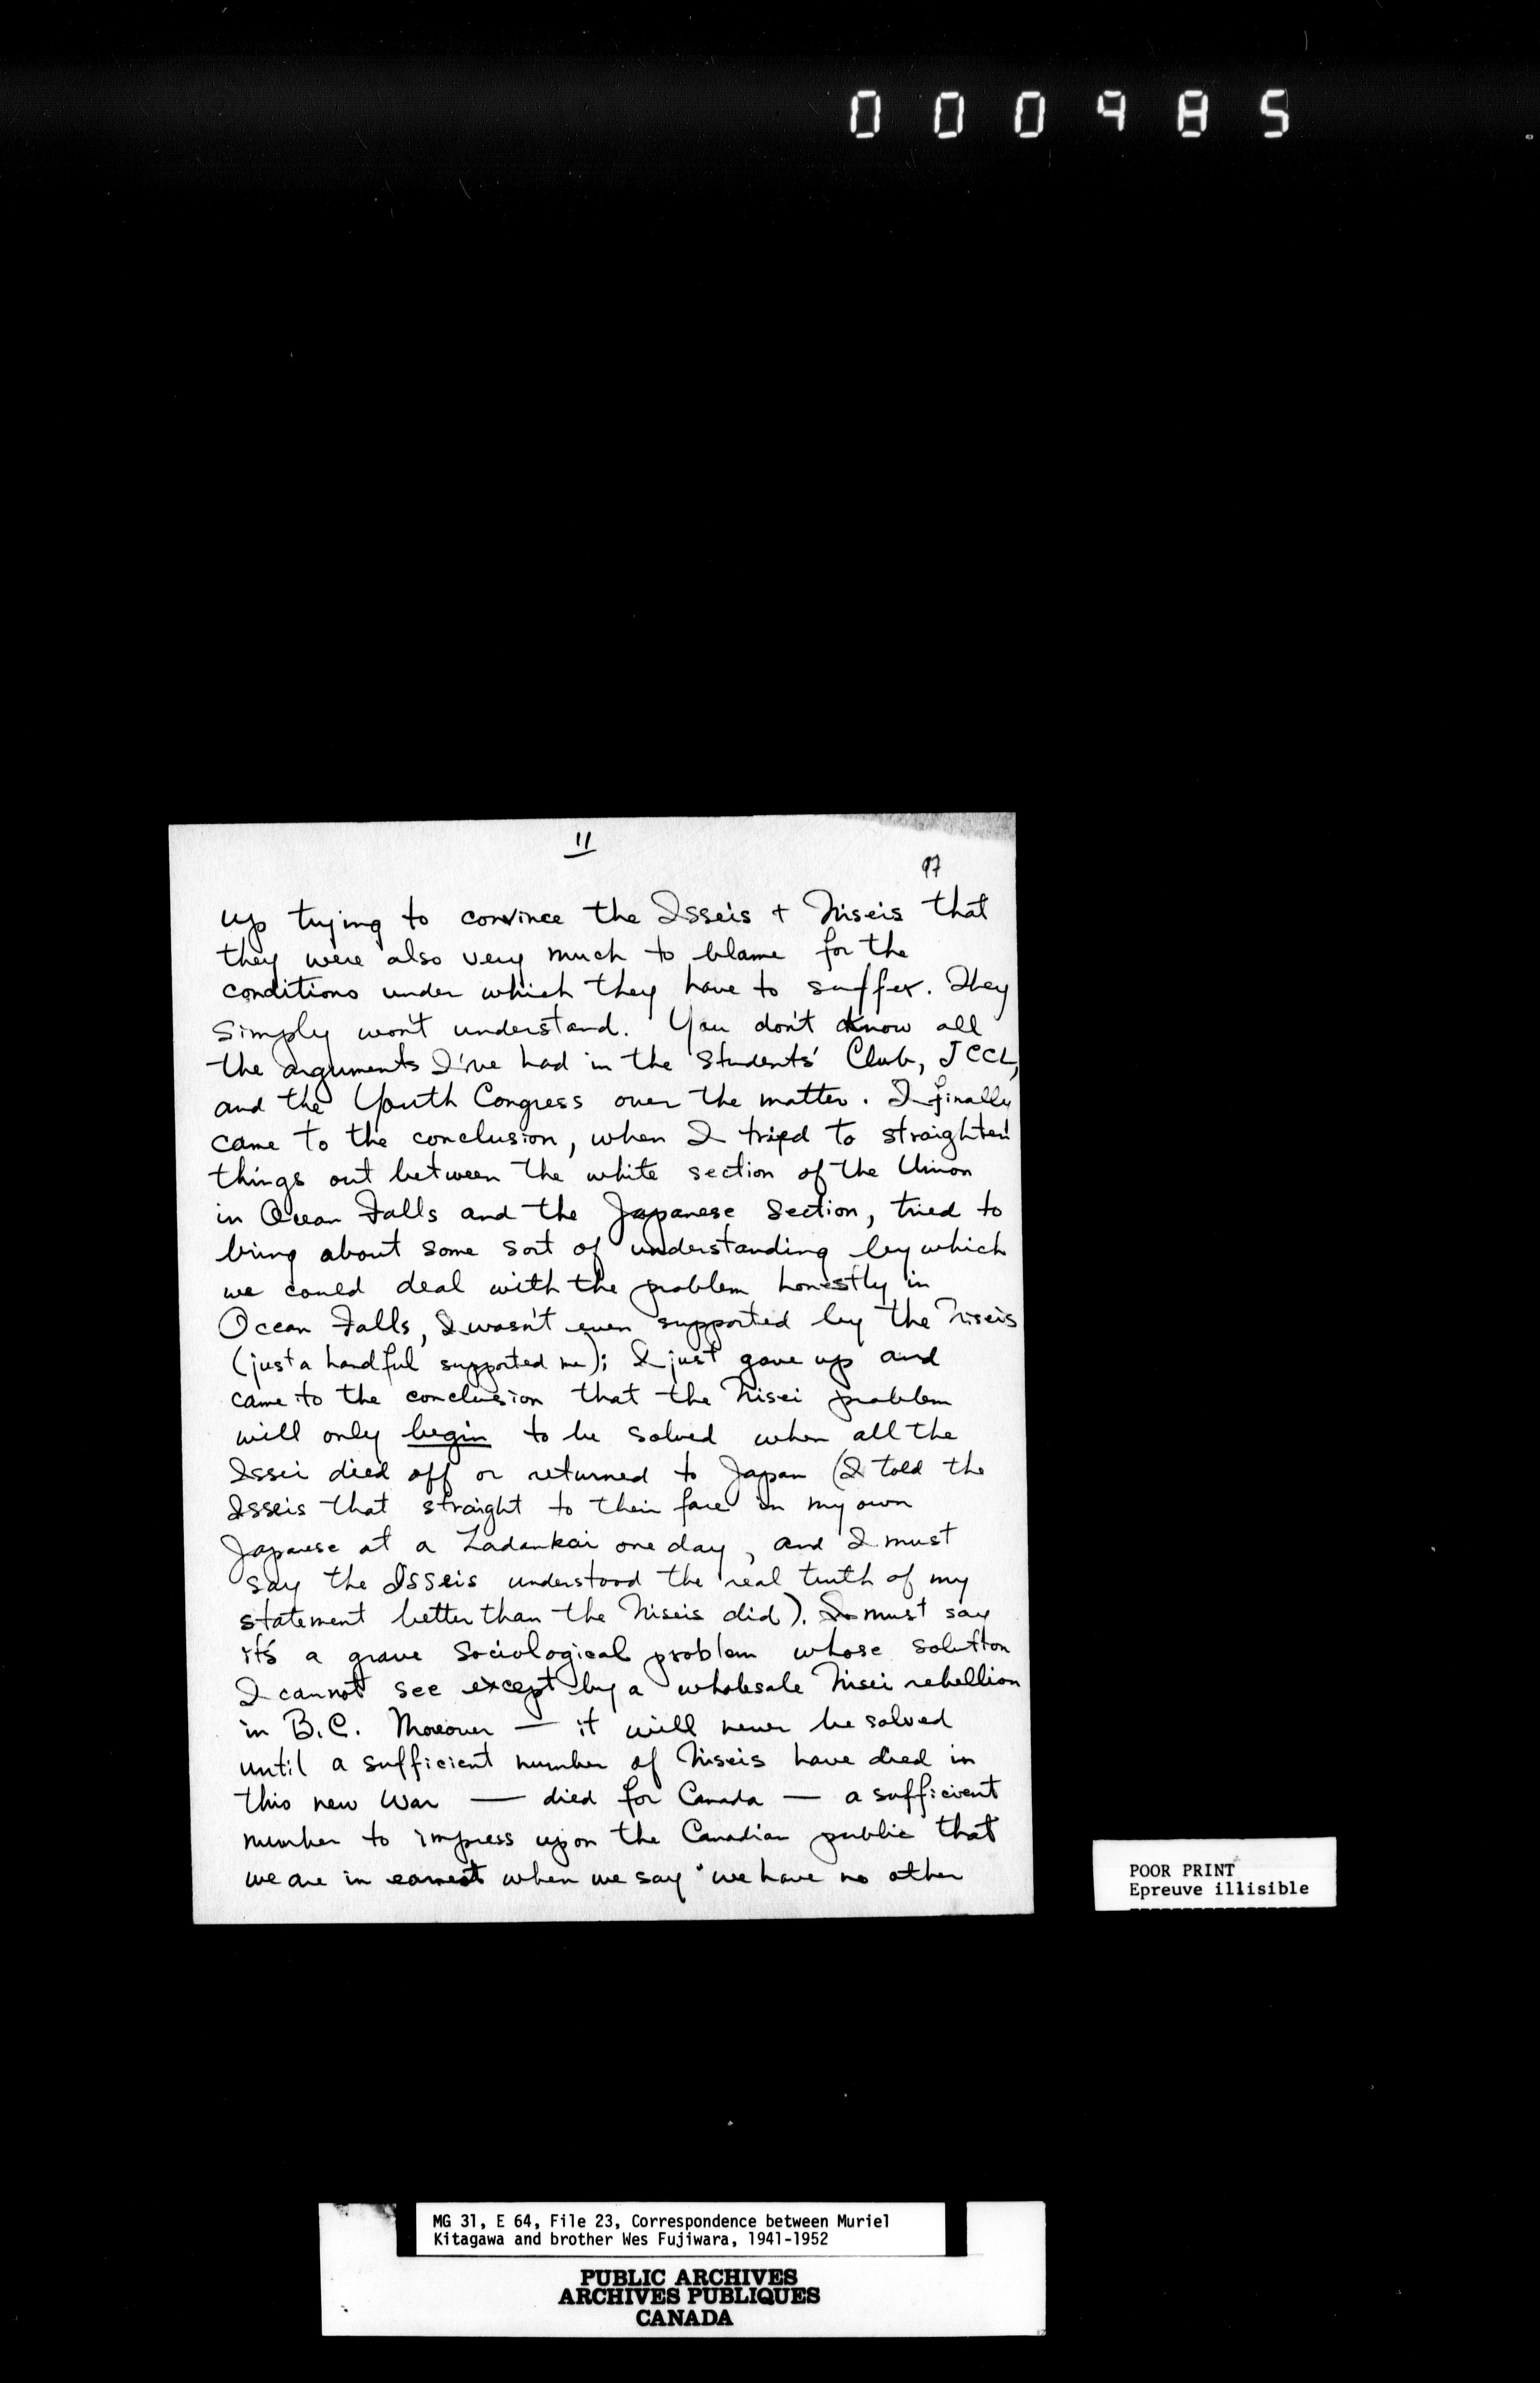 000985
11
97
up trying to convince the Isseis + Niseis that
they were also very much to blame for the
conditions under which they have to suffer. They
simply won't understand. You don't know all
the arguments I've had in the Students' Club, JCCL,
and the Youth Congress over the matter. I finally
came to the conclusion, when I tried to straighten
things out between the white section of the Union
in Ocean Falls and the Japanese Section, tried to
bring about some sort of understanding by which
we could deal with the problem honestly in
Ocean Falls, I wasn't even supported by the Niseis
(just a handful supported me); I just gave up and
came to the conclusion that the Nisei problem
will only begin to be solved when all the
Issei died off or returned to Japan (I told the
Isseis that straight to their face in my own
Japanese at a Zadankai one day, and I must
say the Isseis understood the real truth of my
statement better than the Niseis did). I must say
it's a grave sociological problem whose solution
I cannot see except by a wholesale Nisei rebellion
in B.C. Moreover — it will never be solved
until a sufficient number of Niseis have died in
this new war — died for Canada — a sufficient
number to impress upon the Canadian public that
we are in earnest when we say "we have no other
POOR PRINT
Epreuve illisible
MG 31, E 64, File 23, Correspondence between Muriel
Kitagawa and brother Wes Fujiwara, 1941-1952
PUBLIC ARCHIVES
ARCHIVES PUBLIQUES
CANADA